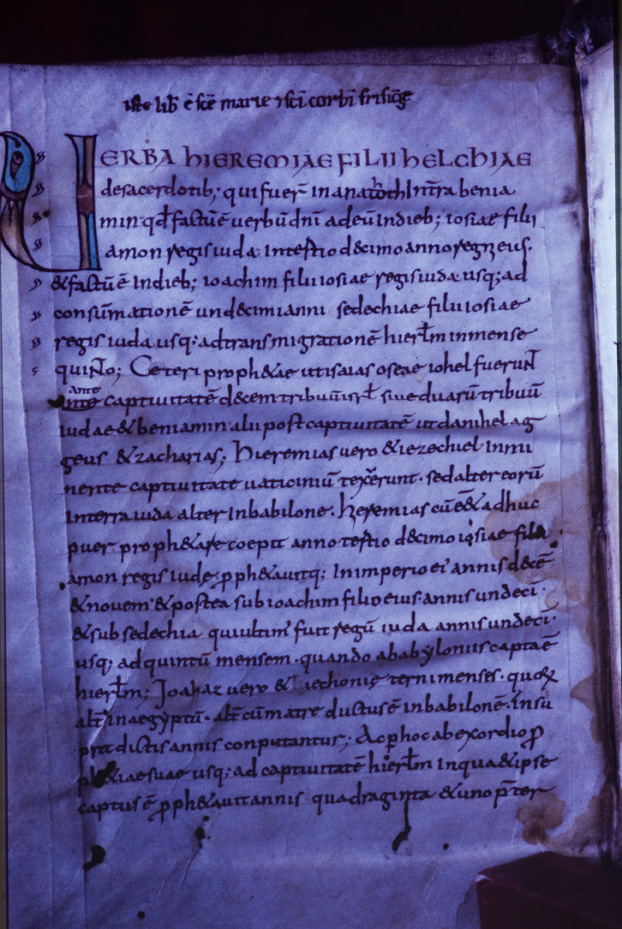 iste lib̄ ē scē marie ⁊ sc̄i corb̄i frisiḡ
VERBA hIEREMIAE FILII hELChIAE
desacerdotib; qui fuer̄ inanathoth Intr̄a benia
min· qđ factū ē uerbū dn̄i adeū indieb; iosiae filii
amon regis iuda intertio decimo anno regni eius·
&factū ē Indieb; ioachim filii iosiae regis iuda usq; ad
consūmationē undecimi anni sedechiae filii iosiae
regis iuda usq; adtransmigrationē hierłm inmense
quinto; Ceteri proph&ae ut isaias oseae iohel fuerunt
ante captiuitatē decem tribuū isrł siue duarū tribuū
iudae &beniamin alii post captiuitatē ut danihel ag
geus &zacharias; hieremias uero &iezechiel inmi
nente captiuitate uaticiniū texerunt· sed alter eorū
Interra iuda alter Inbabilone· hieremias cū e&adhuc
puer proph&are coepit anno tertio decimo iosiae filii
amon regis iude· p̱ph&auitq; Inimperio ei' annis decē
&nouem· &postea sub ioachim filio eius· annis undeci·
&sub sedechia qui ultim' fuit regū iuda annis undeci·
usq; ad quintū mensem· quando ababyloniis capta ē
hierłm; Joahaz uero &iechonie terni menses· quoꝝ
alt̄ inaegyptū· alt̄ cū matre ductus ē inbabilonē· insu
pra dictis annis conputantur; Ac p̱ hoc ab exordio p̱
ph&iae suae usq; ad captiuitatē hierłm inqua &ipse
captus ē p̱ph&auit annis quadraginta &uno p̄ter